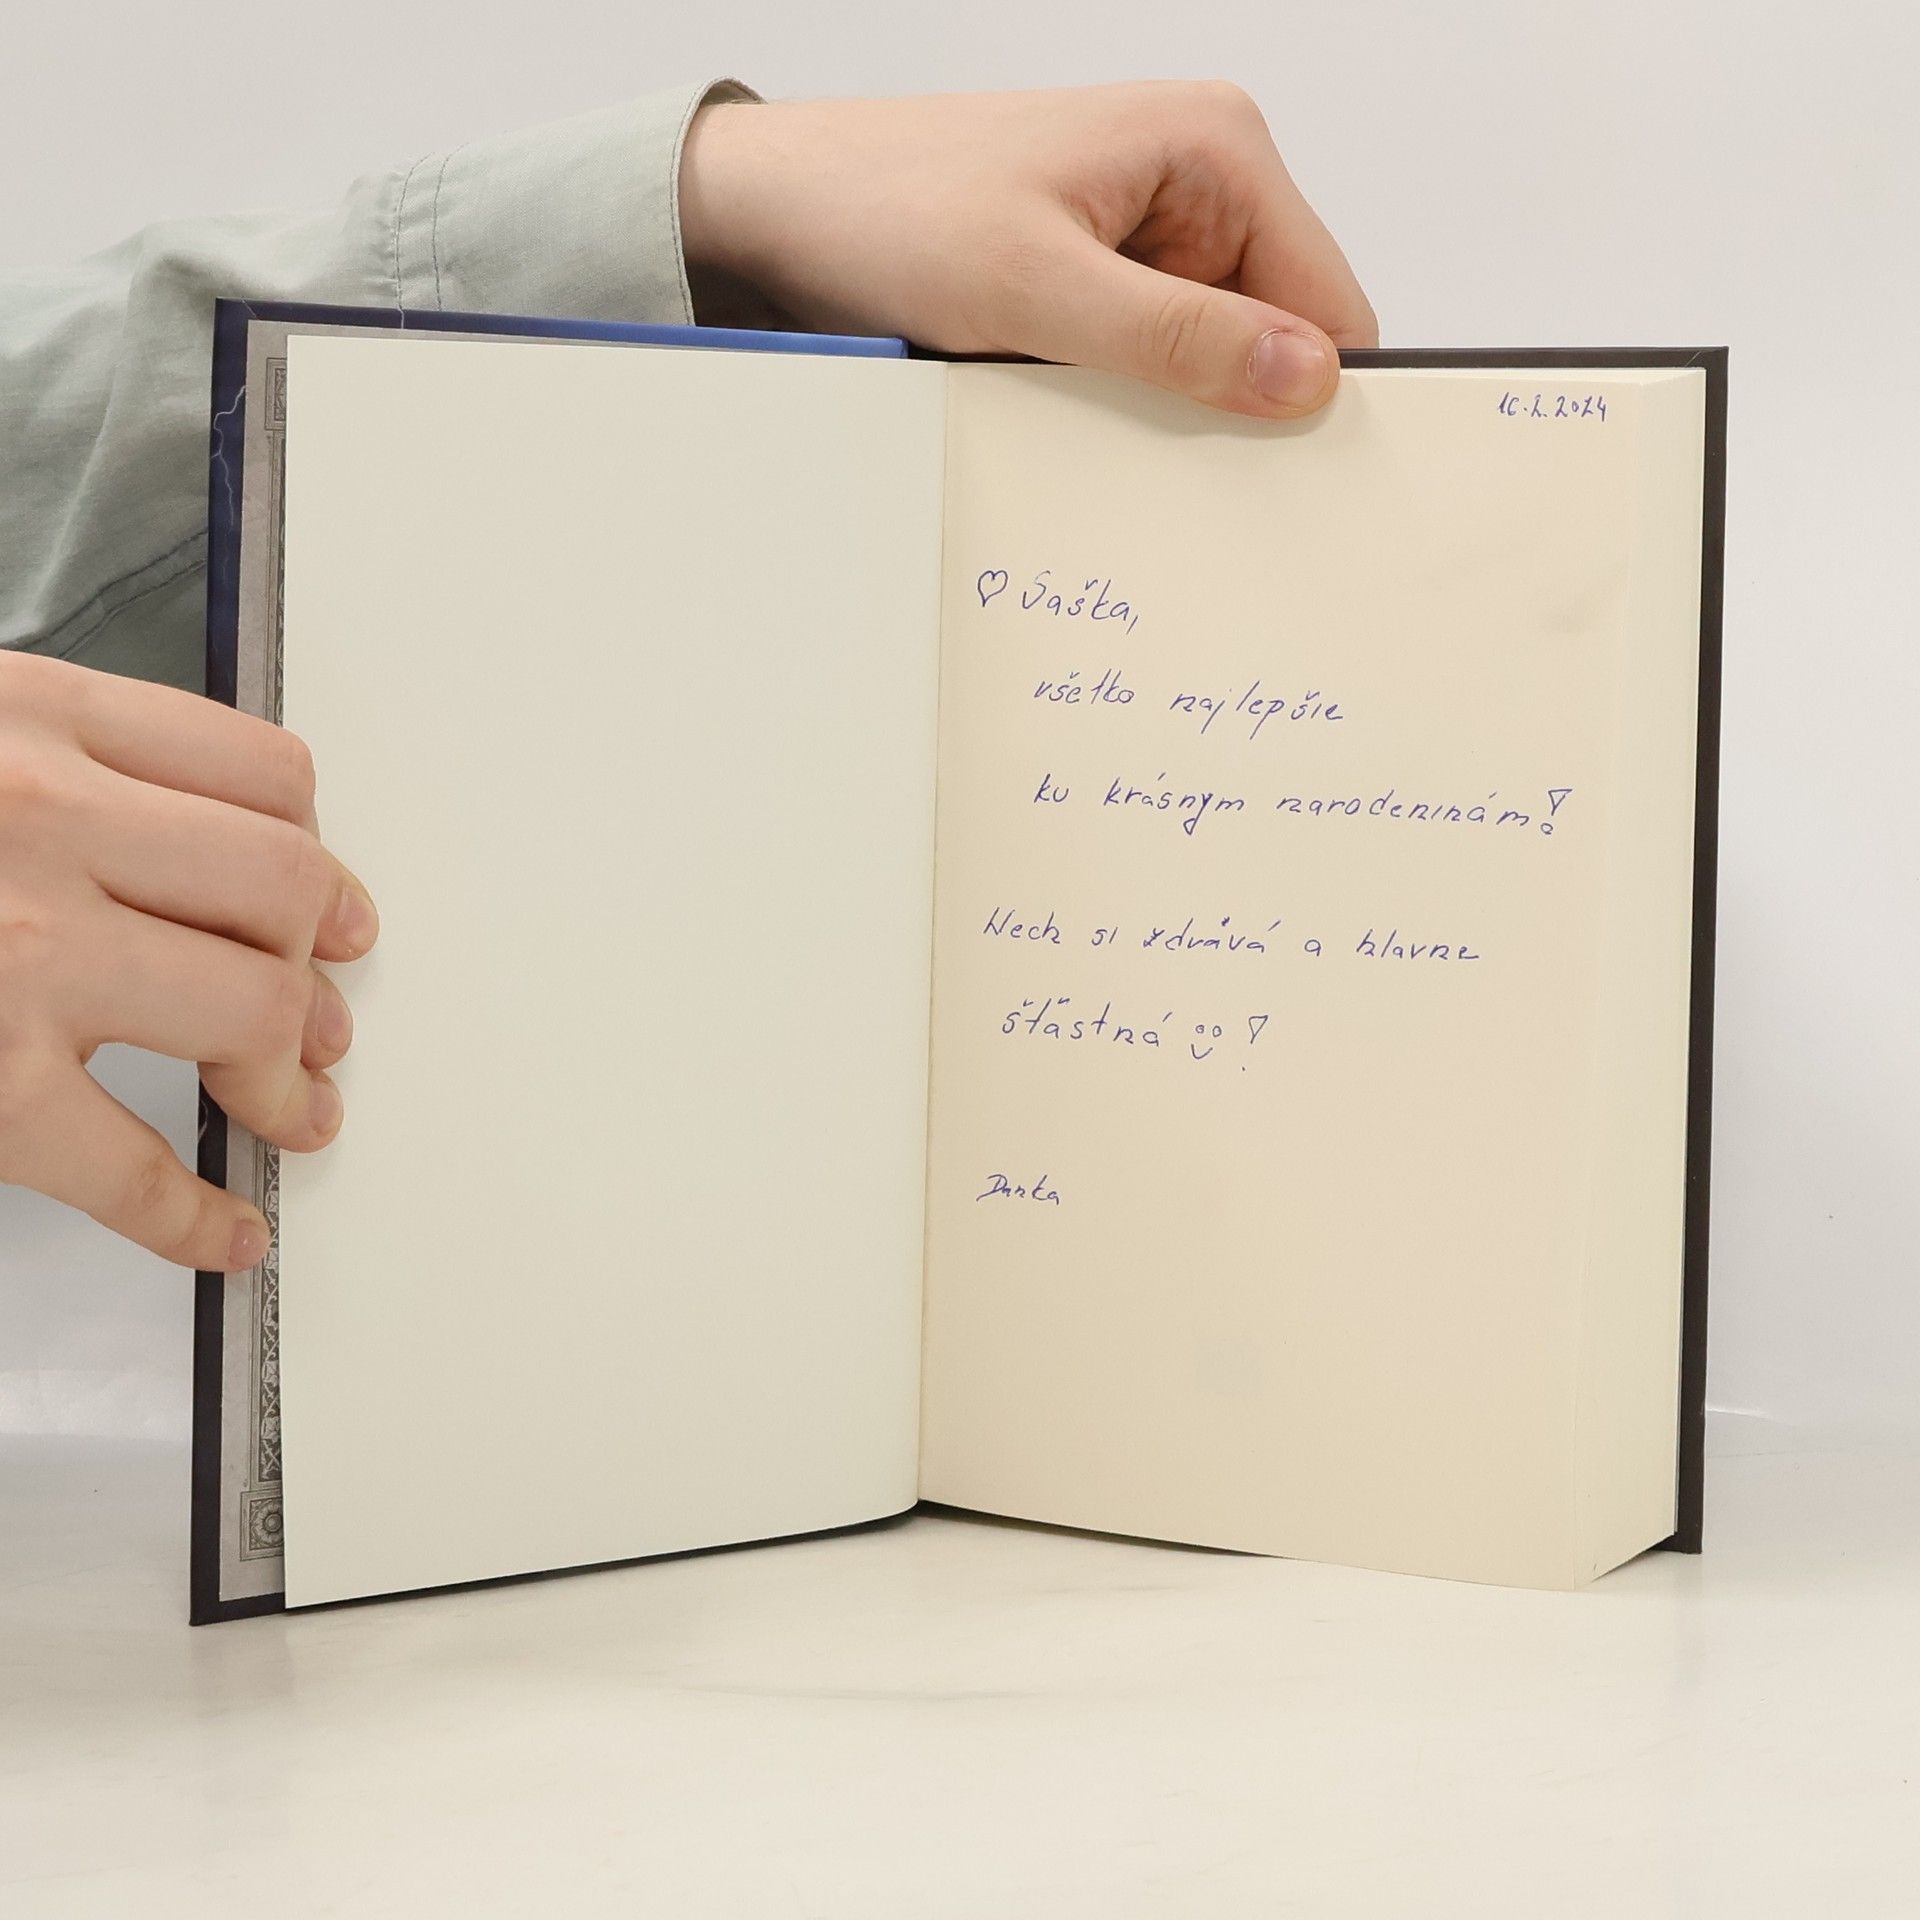 16.2.2024
♡ Saška,
všetko najlepšie
ku krásnym narodeninám!
Nech si zdravá a hlavne
šťastná !
Danka